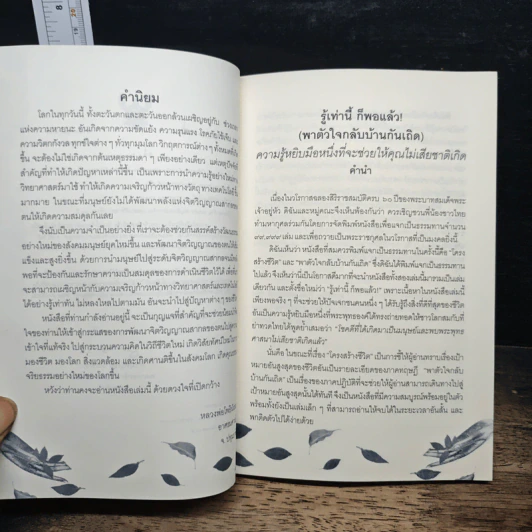 คำนิยม
โลกในทุกวันนี้ ทั้งตะวันตกและตะวันออกล้วนเผชิญอยู่กับ
แห่งความหายนะ อันเกิดจากความขัดแย้ง ความรุนแรง โรคภัยไข้เจ็บ
ความวิตกกังวล ทุกข์ใจต่าง ๆ ทั่วทุกมุมโลก วิกฤตการณ์ต่างๆ
ขึ้น จะต้องไม่ใช่เกิดจากต้นเหตุธรรมดา ๆ เพียงอย่างเดียว แต่
สำคัญที่ทำให้เกิดปัญหาเหล่านี้ขึ้น เป็นเพราะการนำความรู้
วิทยาศาสตร์มาใช้ ทำให้เกิดความเจริญก้าวหน้าทางวัตถุ
มากมาย ในขณะที่มนุษย์ยังไม่ได้พัฒนาพลังแห่งจิตวิญญาณ
ตนให้เกิดความสมดุลกันเลย
จึงนับเป็นความจำเป็นอย่างยิ่ง ที่เราจะต้องช่วยกัน
อย่างใหม่ของสังคมมนุษย์ยุคใหม่ขึ้น และพัฒนาจิตวิญญาณของตนให้
แข็งและสูงยิ่งขึ้น ด้วยการนำมนุษย์ไปสู่ระดับจิตวิญญาณ
พอที่จะป้องกันและรักษาความเป็นสมดุลของการดำเนินชีวิตไว้ได้
จะสามารถเผชิญหน้ากับความเจริญก้าวหน้าทางวิทยาศาสตร์
ได้อย่างรู้เท่าทัน ไม่หลงใหลไปตามมัน อันจะนำไปสู่ปัญหาต่าง ๆ
หนังสือที่ท่านกำลังอ่านอยู่นี้ จะเป็นกุญแจที่สำคัญที่จะช่วย
ใจของท่านให้เข้าสู่กระแสของการพัฒนาจิตวิญญาณสากล
เข้าใจที่แท้จริง ไปสู่กระบวนความคิดในวิถีชีวิตใหม่ เกิดวิสัยทัศน์
มองชีวิต มองโลก สิ่งแวดล้อม และเกิดศานติขึ้นในสังคมโลก
จริยธรรมอย่างใหม่ของโลกขึ้น
หวังว่าท่านคงจะอ่านหนังสือเล่มนี้ ด้วยดวงใจที่เปิดกว้าง
รู้เท่านี้ ก็พอแล้ว!
(พาตัวใจกลับบ้านกันเถิด)
ความรู้หยิบมือหนึ่งที่จะช่วยให้คุณไม่เสียชาติเกิด
คำนำ
เนื่องในวโรกาสฉลองสิริราชสมบัติครบ ๖๐ ปีของพระบาทสมเด็จพระ
เจ้าอยู่หัว ดิฉันและหมู่คณะจึงเห็นพ้องกันว่า ควรเชิญชวนพี่น้องชาวไทย
ทำมหากุศลร่วมกันโดยการจัดพิมพ์หนังสือเพื่อแจกเป็นธรรมทานจำนวน
๙๙,๙๙๙ เล่ม และเพื่อถวายเป็นพระราชกุศลในวโรกาสที่เป็นมงคลยิ่งนี้
ดิฉันเห็นว่า หนังสือที่สมควรพิมพ์แจกเป็นธรรมทานในครั้งนี้คือ "โครง
สร้างชีวิต" และ "พาตัวใจกลับบ้านกันเถิด" ซึ่งดิฉันได้พิมพ์แจกเป็นธรรมทาน
ไปแล้ว จึงเห็นว่านี่เป็นโอกาสดีมากที่จะนำหนังสือทั้งสองเล่มนี้มารวมเป็นเล่ม
เดียวกัน และตั้งชื่อใหม่ว่า "รู้เท่านี้ ก็พอแล้ว!" เพราะเนื้อหาในหนังสือเล่มนี้
เพียงพอจริง ๆ ที่จะช่วยให้ปัจเจกชนคนหนึ่ง ๆ ได้รับรู้ถึงสิ่งที่ดีที่สุดของชีวิต
อันเป็นความรู้หยิบมือหนึ่งที่พระพุทธองค์ได้ทรงถ่ายทอดให้ชาวโลกสมกับที่
ย่าทวดไทยได้พูดย้ำเสมอว่า "โชคดีที่ได้เกิดมาเป็นมนุษย์และพบพระพุทธ
ศาสนาไม่เสียชาติเกิดแล้ว"
นั่นคือ ในขณะที่เรื่อง "โครงสร้างชีวิต" เป็นการชี้ให้ผู้อ่านทราบเรื่องเป้า
หมายอันสูงสุดของชีวิตอันเป็นรายละเอียดของภาคทฤษฎี "พาตัวใจกลับ
บ้านกันเถิด" เป็นเรื่องของภาคปฏิบัติที่จะช่วยให้ผู้อ่านสามารถเดินทางไปสู่
เป้าหมายอันสูงสุดนั้นได้ทันที จึงเป็นหนังสือที่มีความสมบูรณ์พร้อมอยู่ในตัว
พร้อมทั้งยังเป็นเล่มเล็ก ๆ ที่สามารถอ่านให้จบได้ในระยะเวลาอันสั้น และ
พกติดตัวไปได้ง่ายด้วย